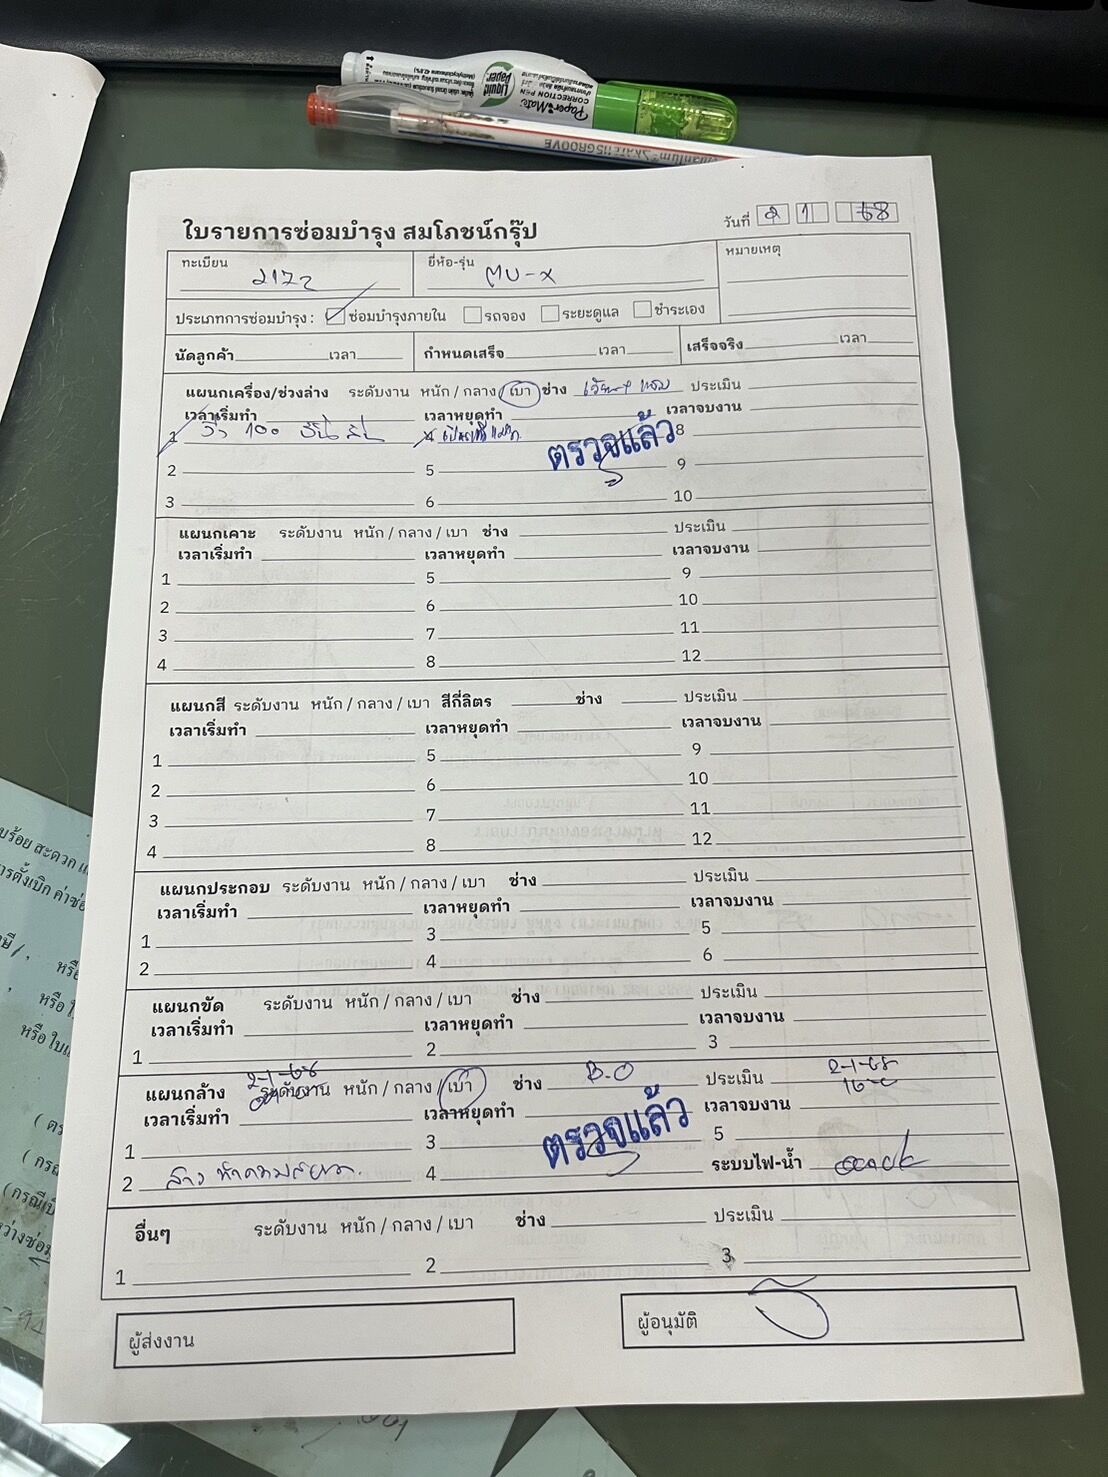 Liquid Paper
Paper Mate
CORRECTION PEN
GROOVE
ใบรายการซ่อมบำรุง สมโภชน์กรุ๊ป
วันที่ 2 1 68
ทะเบียน 2172 ยี่ห้อ-รุ่น MU-X หมายเหตุ
ประเภทการซ่อมบำรุง : ซ่อมบำรุงภายใน รถจอง ระยะดูแล ชำระเอง
นัดลูกค้า เวลา กำหนดเสร็จ เวลา เสร็จจริง เวลา
แผนกเครื่อง/ช่วงล่าง ระดับงาน หนัก / กลาง / เบา ช่าง ประเมิน
เวลาเริ่มทำ เวลาหยุดทำ เวลาจบงาน
1 100 4 8
ตรวจแล้ว
2 5 9
3 6 10
แผนกเคาะ ระดับงาน หนัก / กลาง / เบา ช่าง ประเมิน
เวลาเริ่มทำ เวลาหยุดทำ เวลาจบงาน
1 5 9
2 6 10
3 7 11
4 8 12
แผนกสี ระดับงาน หนัก / กลาง / เบา สีกี่ลิตร ช่าง ประเมิน
เวลาเริ่มทำ เวลาหยุดทำ เวลาจบงาน
1 5 9
2 6 10
3 7 11
4 8 12
แผนกประกอบ ระดับงาน หนัก / กลาง / เบา ช่าง ประเมิน
เวลาเริ่มทำ เวลาหยุดทำ เวลาจบงาน
1 3 5
2 4 6
แผนกขัด ระดับงาน หนัก / กลาง / เบา ช่าง ประเมิน
เวลาเริ่มทำ เวลาหยุดทำ เวลาจบงาน
1 2 3
2-1-68 2-1-68
แผนกล้าง ระดับงาน หนัก / กลาง / เบา ช่าง B.O ประเมิน
เวลาเริ่มทำ เวลาหยุดทำ เวลาจบงาน
1 3 5
ตรวจแล้ว
2 ล้าง ทำความสะอาด. 4 ระบบไฟ-น้ำ
อื่นๆ ระดับงาน หนัก / กลาง / เบา ช่าง ประเมิน
1 2 3
ผู้ส่งงาน ผู้อนุมัติ